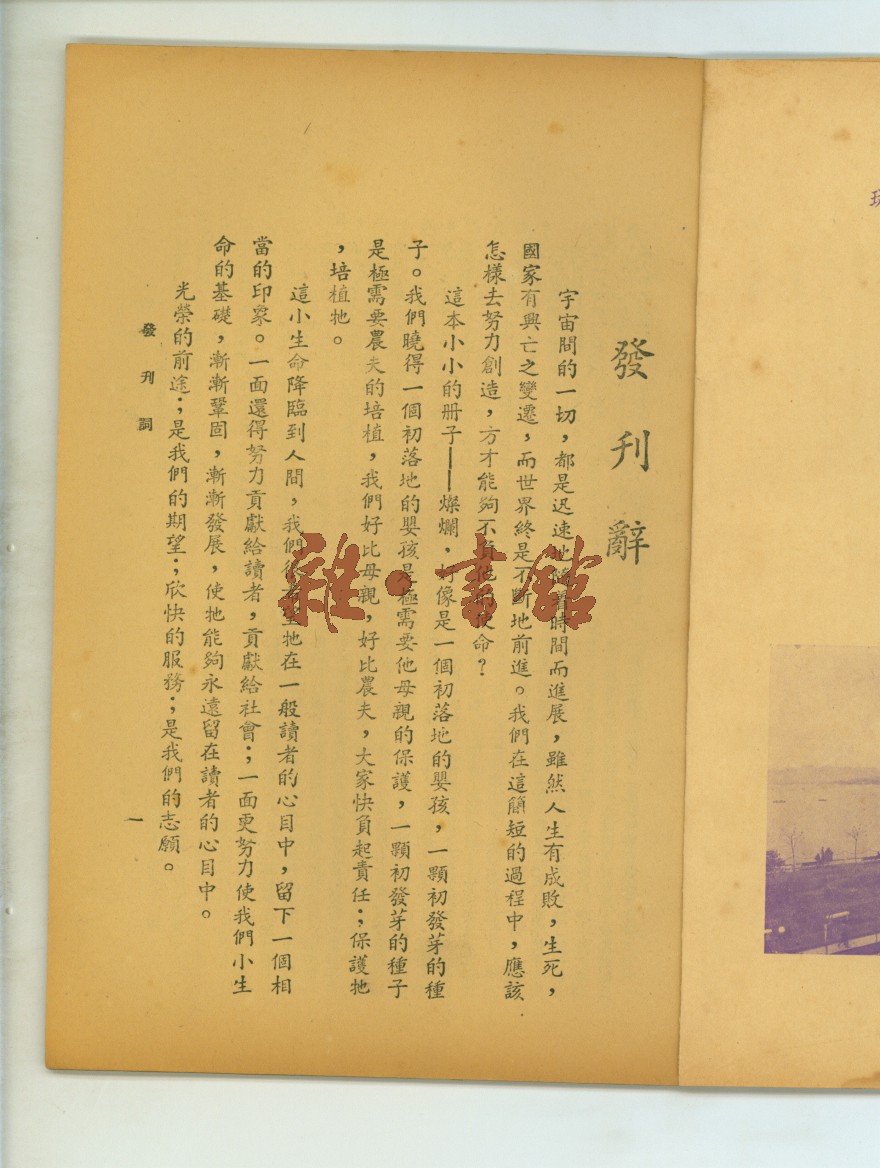 發刊辭
宇宙間的一切，都是迟速地隨着時間而進展，雖然人生有成敗，生死，
國家有興亡之變遷，而世界終是不斷地前進。我們在這簡短的過程中，應該
怎樣去努力創造，方才能夠不負他的使命？
這本小小的册子——燦爛，好像是一個初落地的嬰孩，一顆初發芽的種
子。我們曉得一個初落地的嬰孩是極需要他母親的保護，一顆初發芽的種子
是極需要農夫的培植，我們好比母親，好比農夫，大家快負起責任；保護牠
，培植牠。
這小生命降臨到人間，我們很希望牠在一般讀者的心目中，留下一個相
當的印象。一面還得努力貢獻給讀者，貢獻給社會；一面更努力使我們小生
命的基礎，漸漸鞏固，漸漸發展，使牠能夠永遠留在讀者的心目中。
光榮的前途；是我們的期望；欣快的服務；是我們的志願。
發刊詞
一
雜·書館